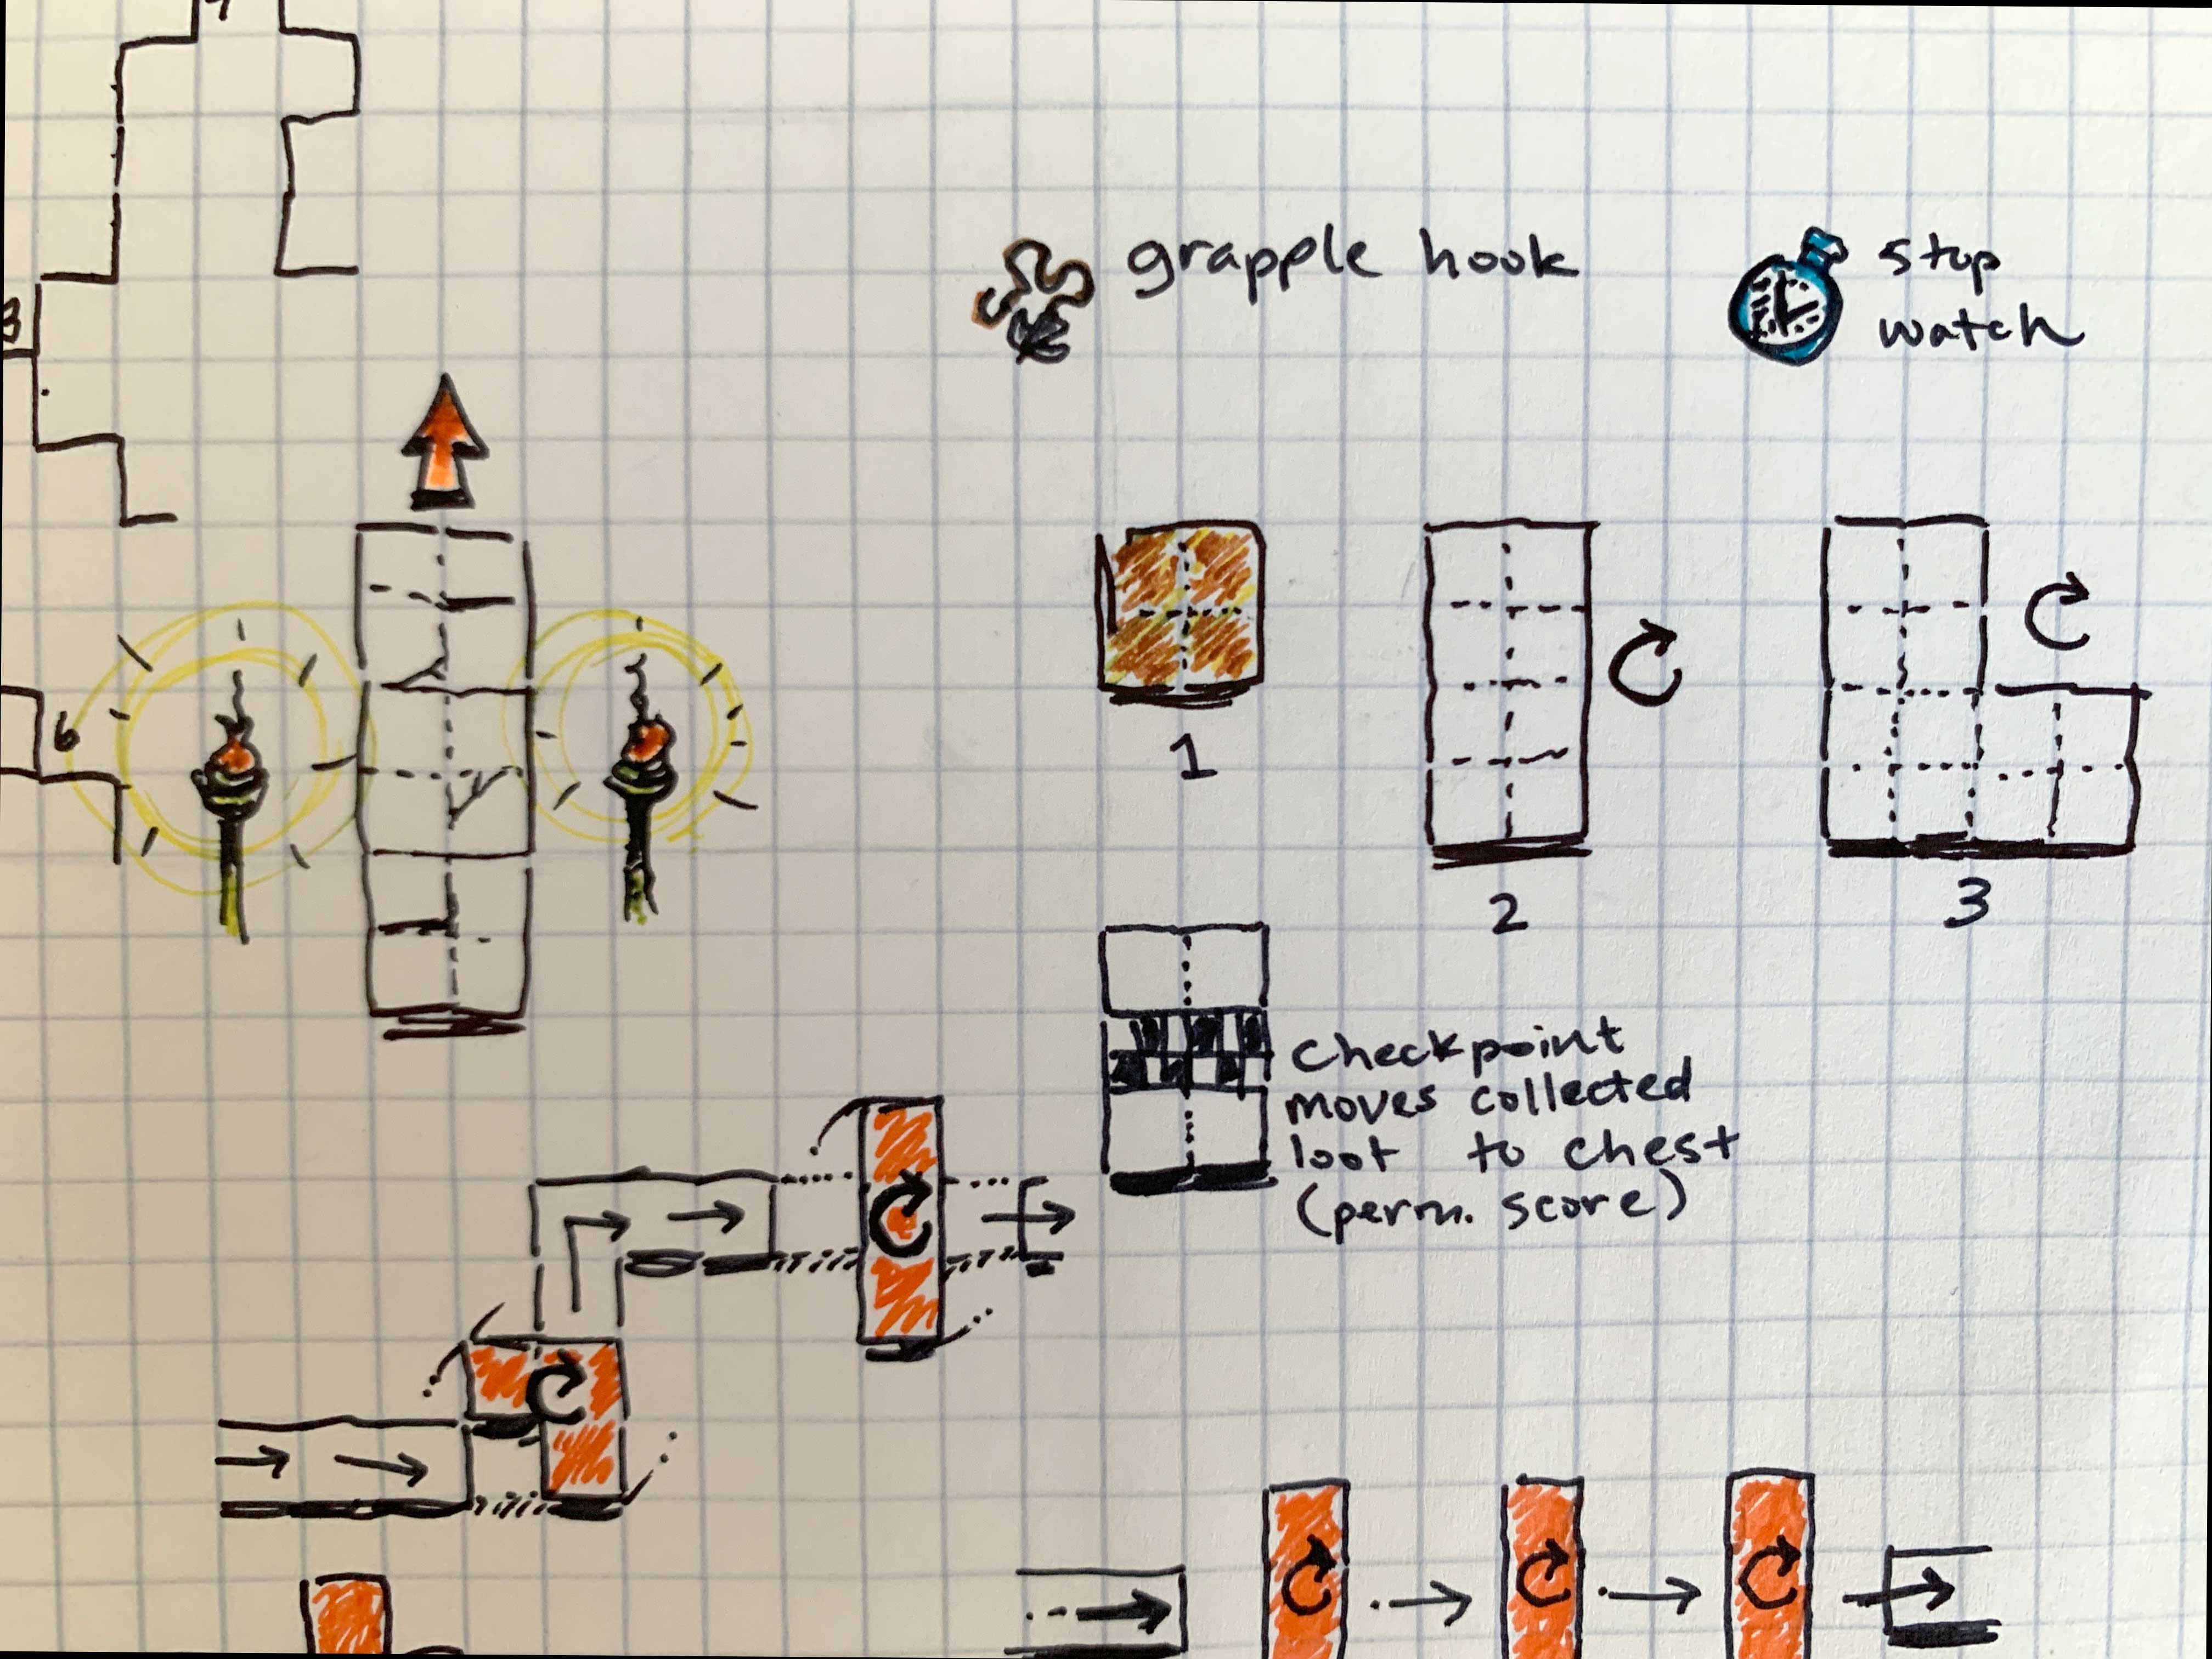 grapple hook
stop
watch
3
6
1
2
3
checkpoint
moves collected
loot to chest
(perm. score)